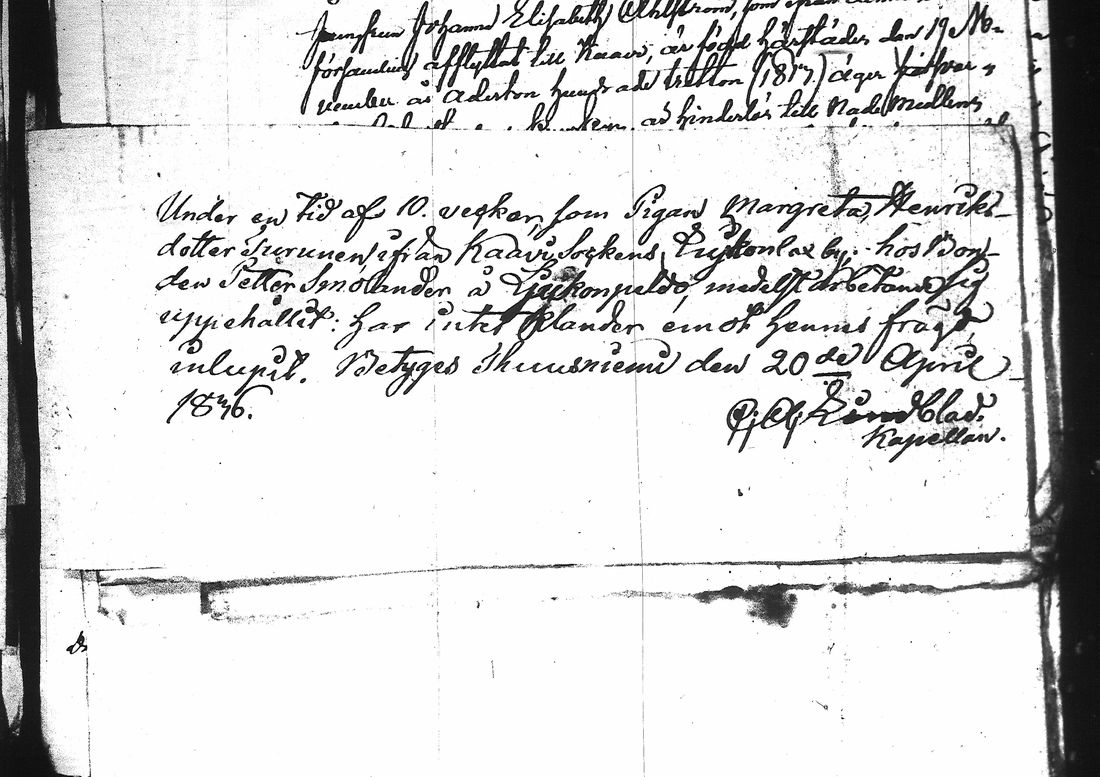 Jungfrun Johanna Elisabeth Ahlström, som
församling afflyttat till Kaavi, är född härstädes den 19 No-
vember år Aderton hundrade tretton (1813) äger
är hinderlös till Nade Medlens
Under en tid af 10. veckor, som Pigan Margreta Henriks-
dotter Turunen ifrån Kaavi Sockens by, hos Bon-
den Petter Smolander å medelst arbetande sig
uppehållit: har intet klander emot hennes frägd
inlupit. Betyges Thuusniemi den 20de April
1836.
Lundblad.
Kapellan.